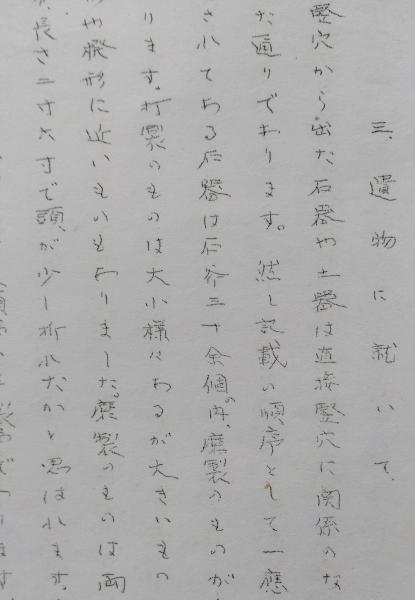 三、遺物に就いて、
竪穴から出た石器や土器は直接竪穴に関係のな
た通りであります。然し記載の順序として一應
されてゐる石器は石斧三十余個の内、磨製のものが
ります。打製のものは大小様々あるが大きいもの
や撥形に近いものもありました。磨製のものは両
長さ二寸六寸で頭が少し折れたかと思はれます。